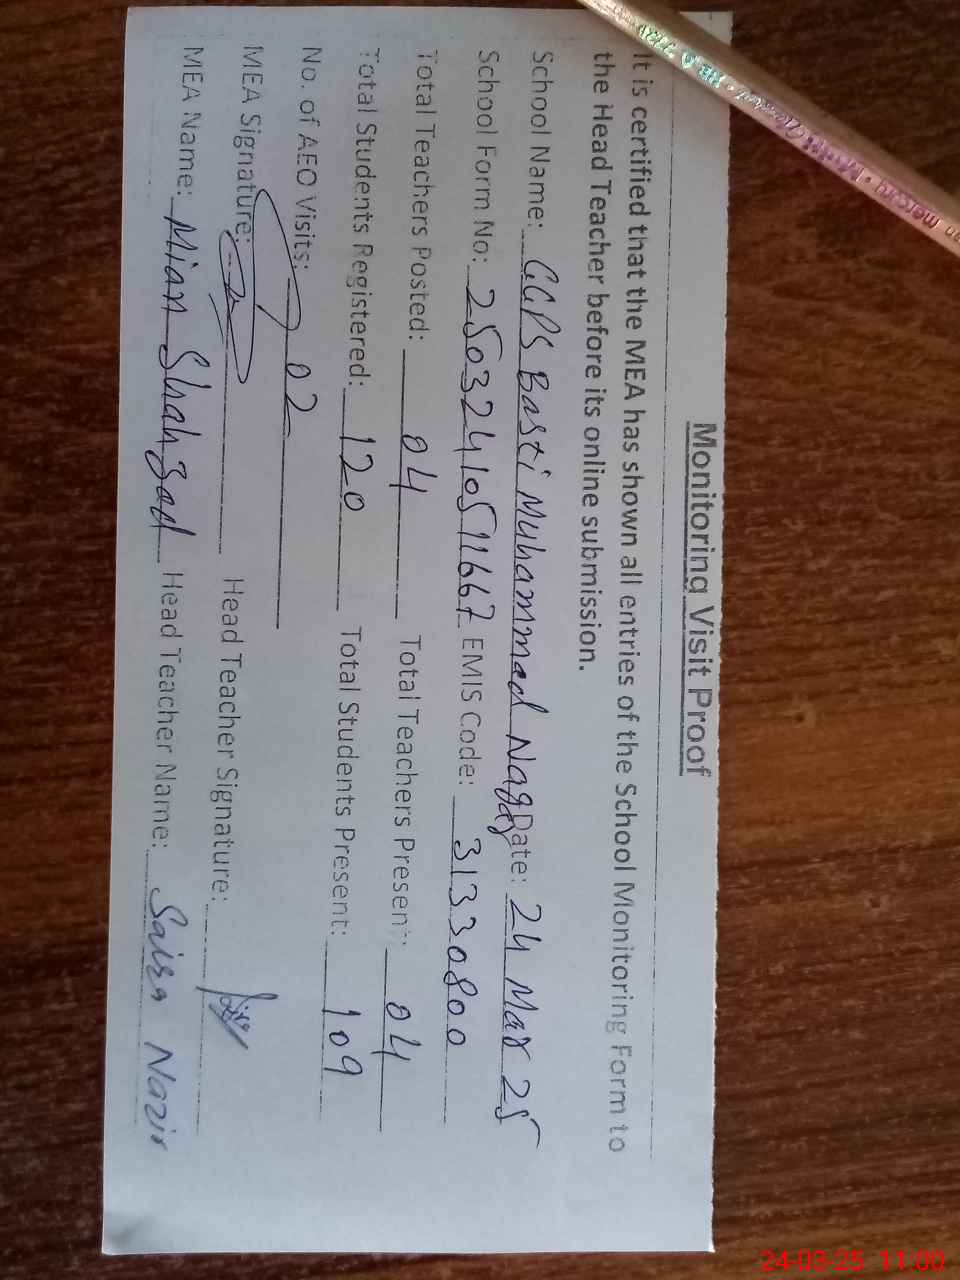 Monitoring Visit Proof
It is certified that the MEA has shown all entries of the School Monitoring Form to
the Head Teacher before its online submission.
School Name: GGPS Basti Muhammad Nagar Date: 24 Mar 25
School Form No: 25032410511667 EMIS Code: 31330800
Total Teachers Posted: 04 Total Teachers Present: 04
Total Students Registered: 120 Total Students Present: 109
No. of AEO Visits: 02
MEA Signature: Head Teacher Signature:
MEA Name: Mian Shahzad Head Teacher Name: Saira Nazir
24-03-25 11:00